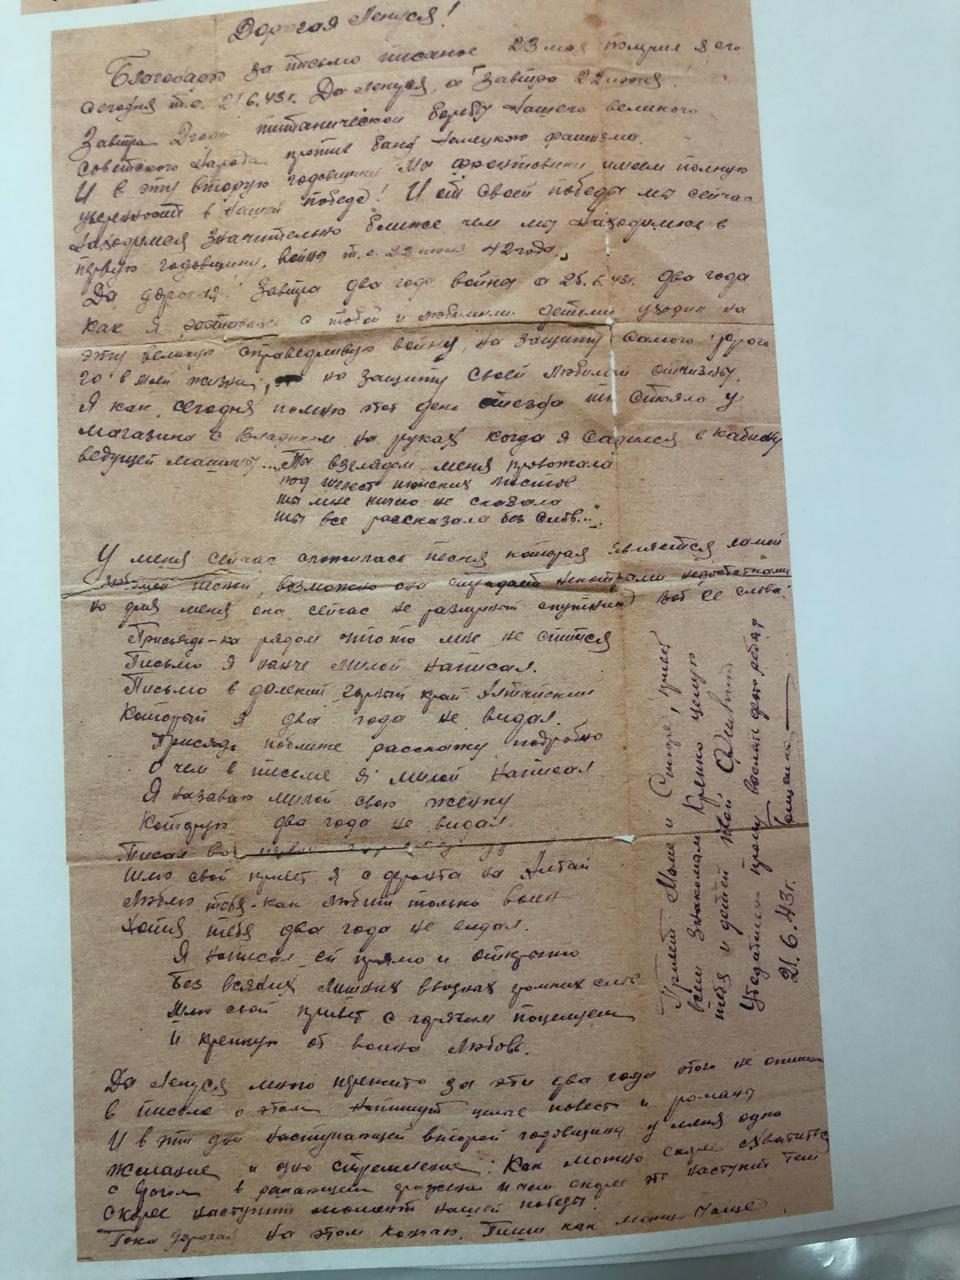 Дорогая Ленуся!
Благодарю за письмо писаное 23 мая получил я его
сегодня т.е. 21.6.43г. Да Ленуся, а завтра 22 июня!
Завтра 2 года титанической борьбы нашего великого
советского народа против банд немецкого фашизма.
И в эту вторую годовщину мы фронтовики имеем полную
уверенность в нашей победе! И от своей победы мы сейчас
находимся значительно ближе чем мы находились в
первую годовщину войны т.е. 22 июня 42 года.
Да дорогая! Завтра два года войны а 25.6.43г. два года
как я расстался с тобой и любимыми детьми уходил на
эту великую справедливую войну, на защиту самого дорого
го в моей жизни, на защиту своей любимой отчизны.
Я как сегодня помню этот день отъезда ты стояла у
магазина с Владиком на руках когда я садился в кабину
ведущей машины... "Ты взглядом меня провожала
под шелест июньских листов
ты мне ничего не сказала
ты все рассказала без слов..."
У меня сейчас сложилась песня которая является самой
любимой песней, возможно она страдает некоторыми недоработками
но для меня она сейчас не разлучный спутник) вот её слова:
Присядь-ка рядом что то мне не спится
Письмо я нынче милой написал.
Письмо в далекий, горный край Алтайский
Который я два года не видал.
Присядь поближе расскажу подробно
О чем в письме я милой написал
Я называю милой свою женку
Которую два года не видал.
Писал
Шлю свой привет я с фронта на Алтай
Люблю тебя как любит только воин
Хотя тебя два года не видал.
Я написал ей прямо и открыто
Без всяких лишних вводных громких слов
Шлю свой привет с горячим поцелуем
И крепкую от воина любовь.
Да Ленуся много пережито за эти два года этого не опишешь
в письме о этом напишут целые повести и романы
И в эти дни наступающей второй годовщины у меня одно
желание и одно стремление: Как можно скорее схватиться
с врагом в решающем сражении и чем скорее это наступит тем
скорее наступит момент нашей победы.
Пока дорогая на этом кончаю. Пиши как можно чаще.
Привет Маме и привет
всем знакомым Крепко целую
тебя и детей твой
Убедительно прошу вышли фото ребят
21.6.43г.